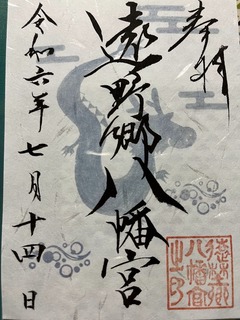 奉拝
遠野郷八幡宮
令和六年七月十四日
遠野郷
八幡宮
之印